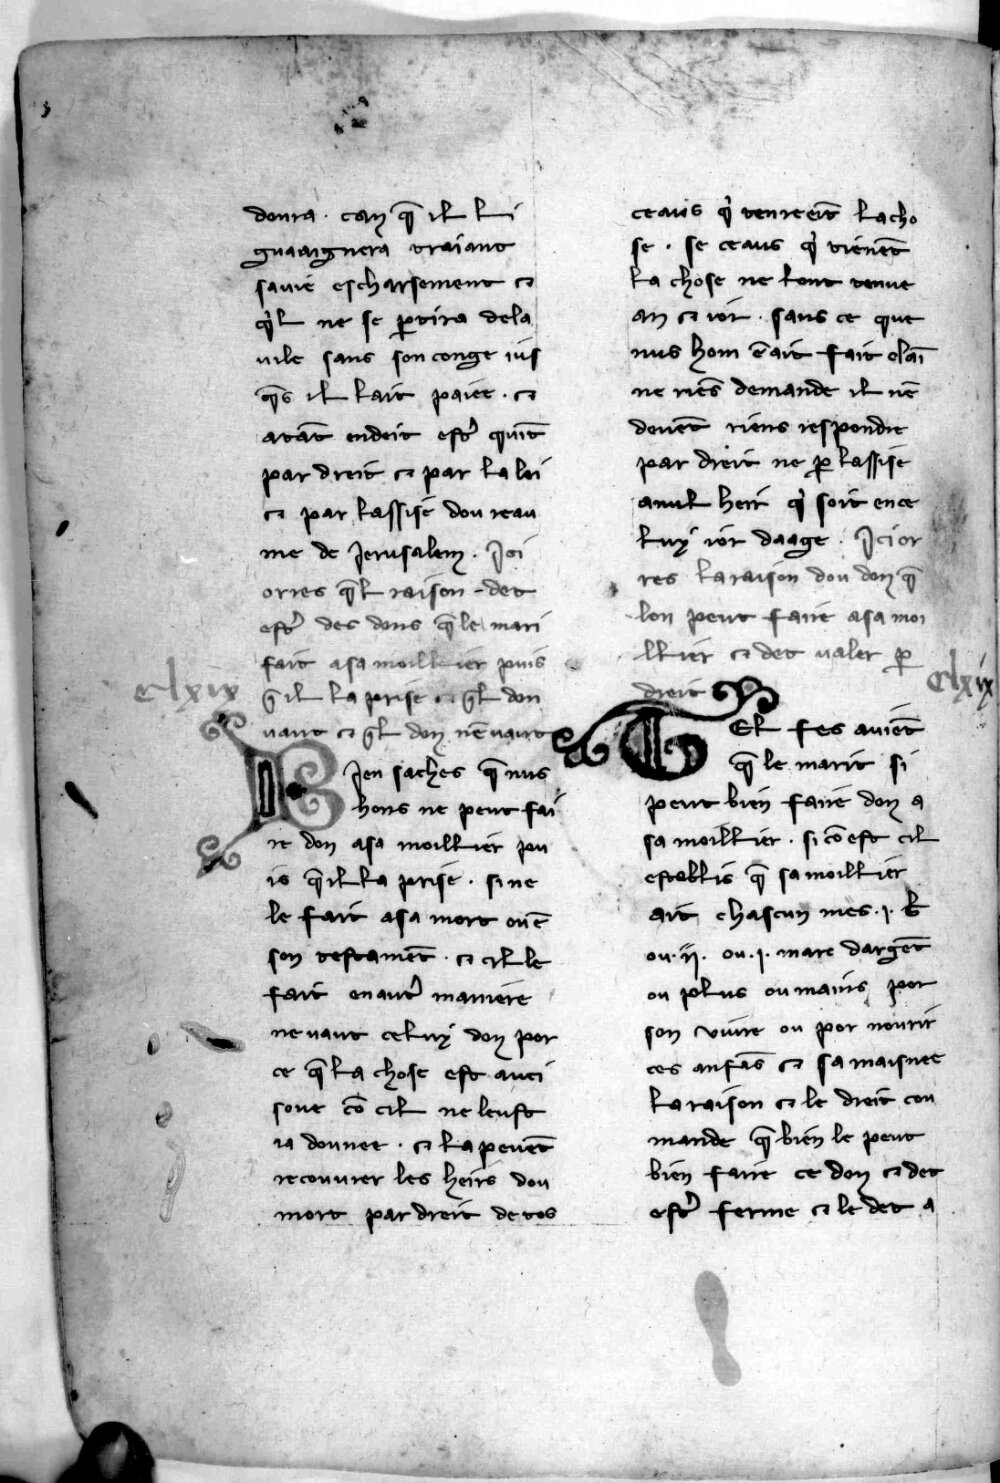 donra . can q̃ il li
guaaignera traiant
sauie escharsement ⁊
q̓l ne se ꝑtira dela
uile sans son conge ius
q̃s il lait paiee . ⁊
atãt endeit estr̓ quit̃
par dreit ⁊ par la lei
⁊ par lassise dou reau
me de Jerusalem . Ici
orres q̃l raison det
estr̓ des dons q̃ le mari
fait asa moillier puis
q̃ il la prise ⁊ q̃l don
uaut ⁊ q̃l don nẽ uaut
clxix
BIen saches q̃ nus
hons ne peut fai
re don asa moillier pou
is q̃ il la prise . si ne
le fait asa mort ou ẽ
son testamẽt . ⁊ cil le
fait en autr̓ maniere
ne uaut celuy don por
ce q̃ la chose est auci
soue cõ cil ne leust
ia donnee . ⁊ la peuẽt
recouurer les heirs dou
mort par dreit de tos
ceaus q̓ tenreẽit la cho
se . se ceaus q̓ tienẽt
la chose ne lont tenue
an ⁊ ior . sans ce que
nus hom ẽ ait fait claĩ
ne riẽs demande il nẽ
deuẽt riens respondre
par dreit ne ꝑ lassise
a nul heir q̓ soit en ce
luy ior daage . Ici or
res la raison dou don q̃
lon peut faire asa moi
llier ⁊ det ualer ꝑ
dreit
clxix
TEl fes auiẽt
q̃ le marit si
peut bien faire don a
sa moillier . si cõ est cil
establis q̃ sa moillier
ait chascun mes .j. ƀ
ou .ij. ou .j. marc dargẽt
ou plus ou mains por
son viure ou por nourir
ces anfãs ⁊ sa maisnee
la raison ⁊ le dreit cou
mande q̃ bien le peut
bien faire ce don ⁊ det
estr̓ ferme ⁊ le det a